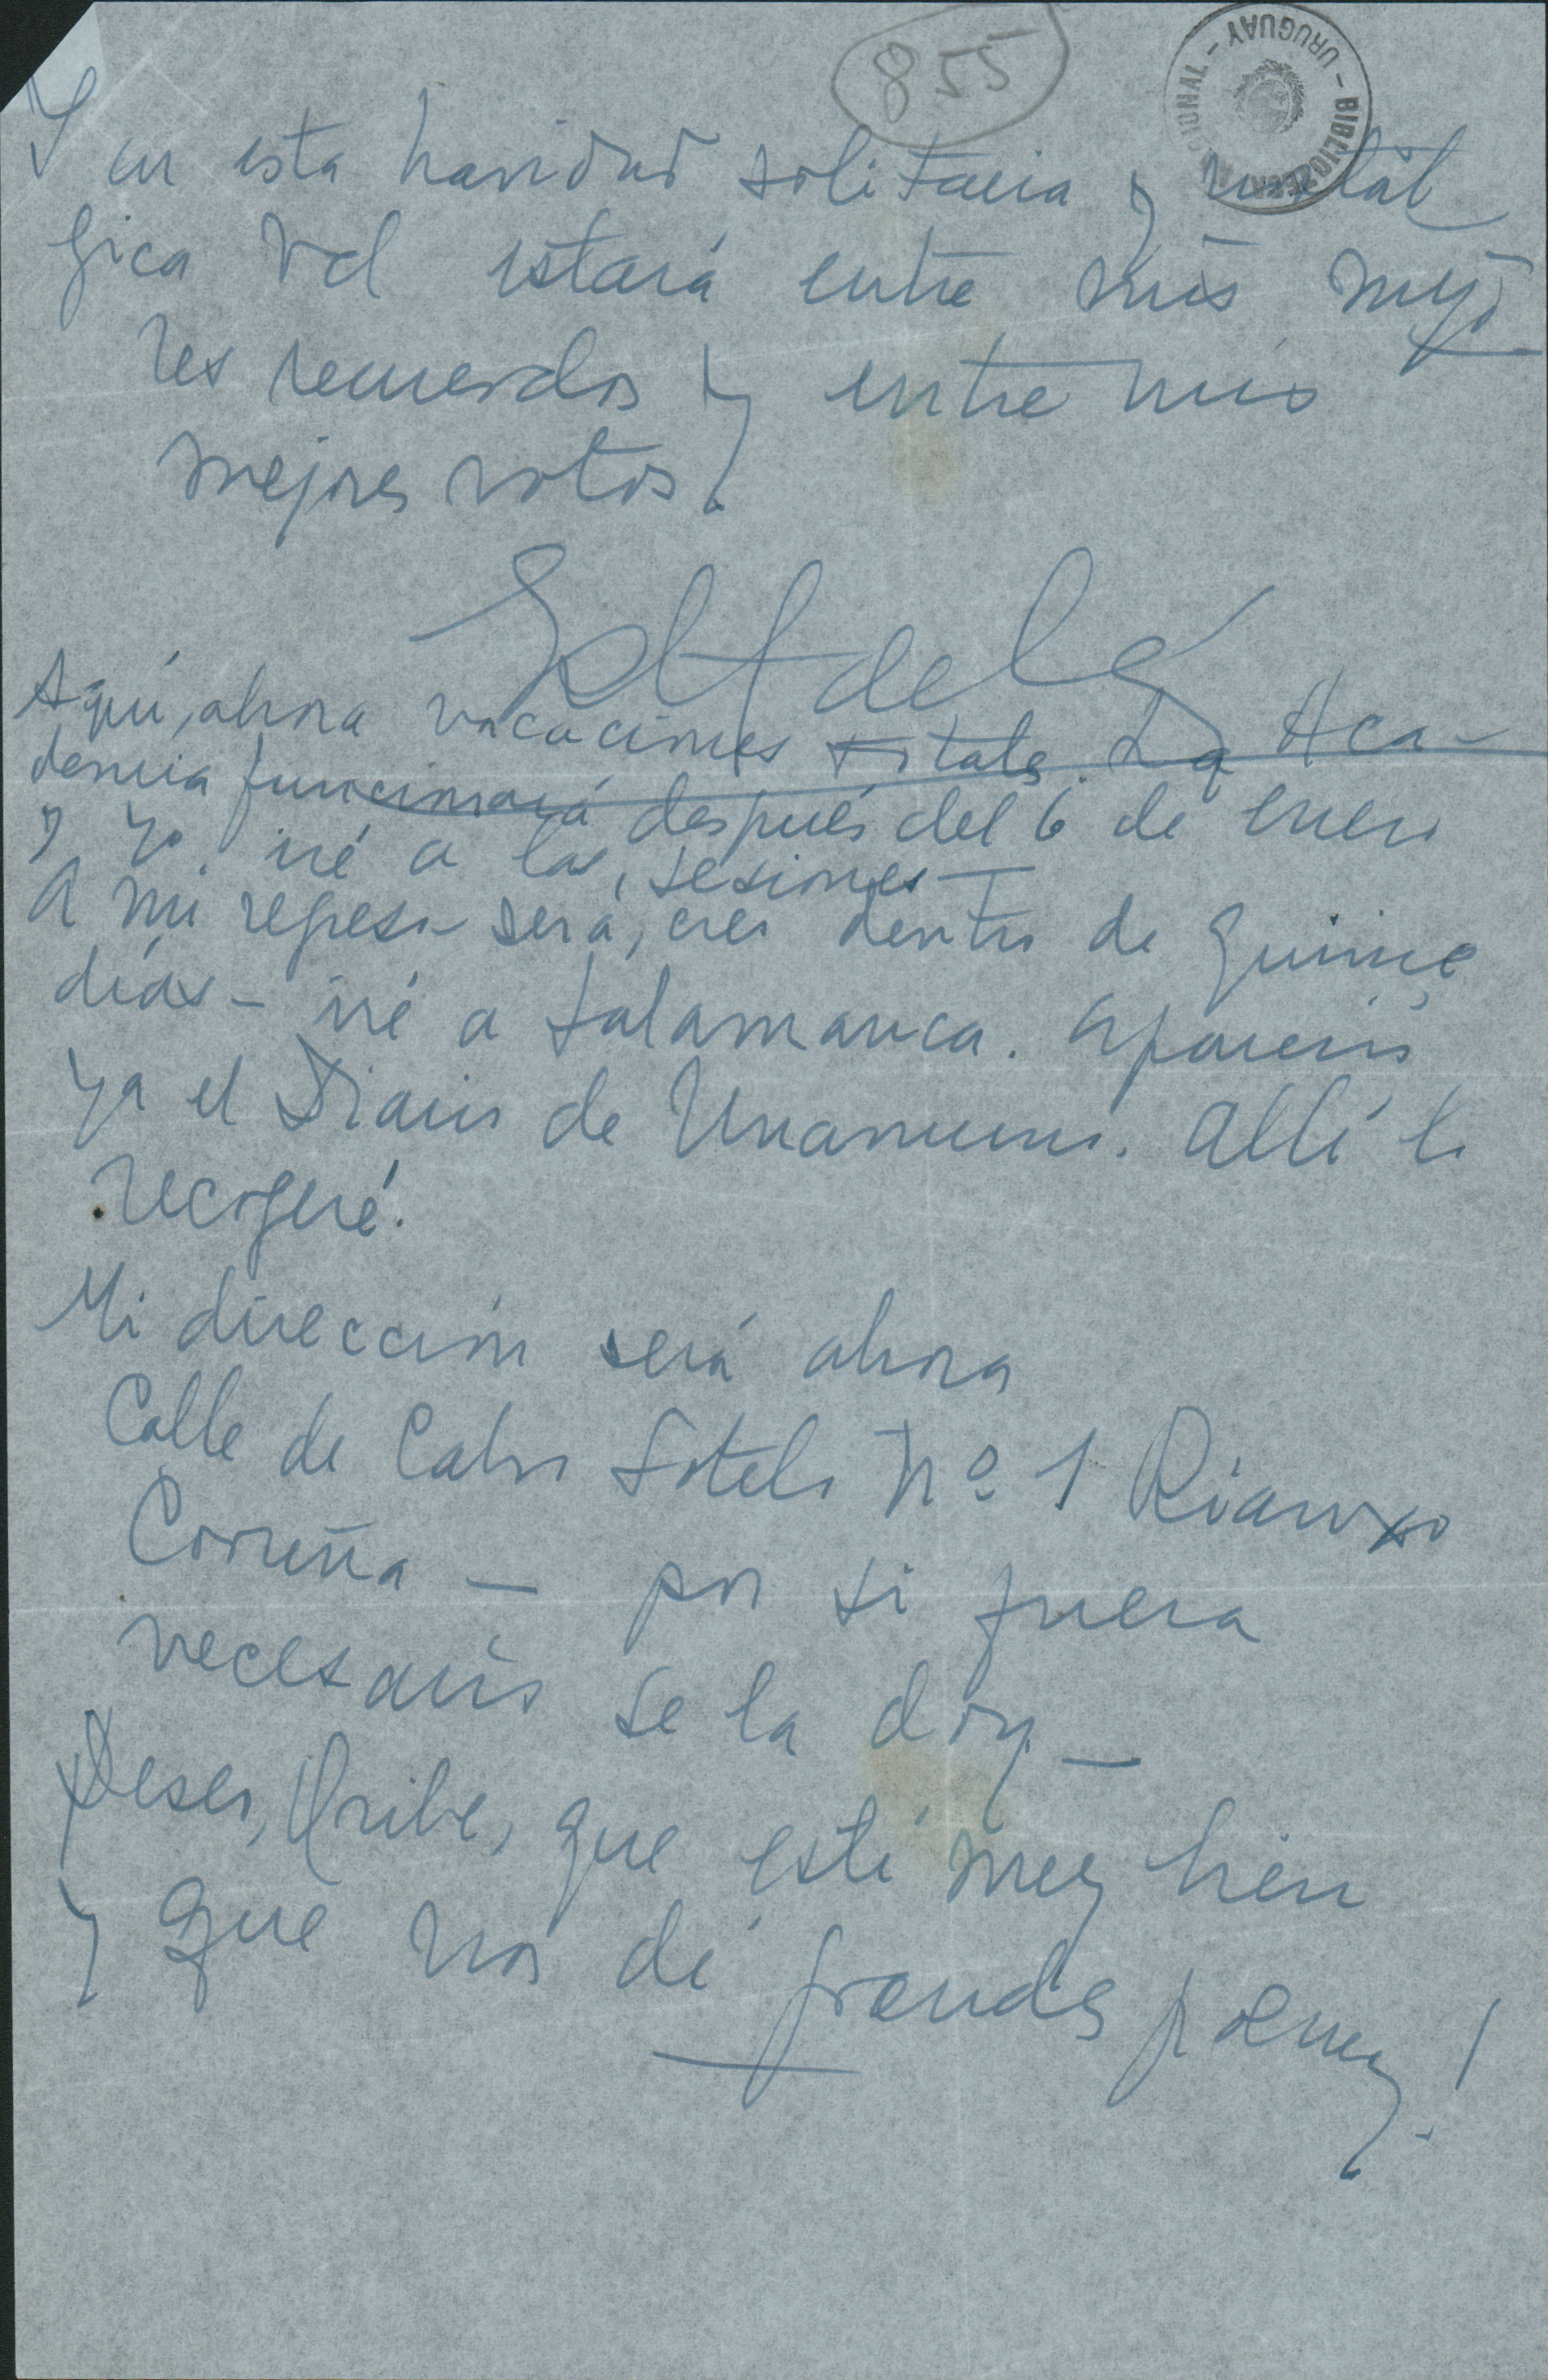 855
BIBLIOTECA NACIONAL - URUGUAY -
Y en esta navidad solitaria y nostál
gica Vd estará entre mis mejo
res recuerdos y entre mis
mejores votos!
Aquí, ahora vacaciones totales. La Aca-
demia funcionará después del 6 de enero
y yo iré a las sesiones—
A mi regreso será, creo dentro de quince
días – iré a Salamanca. Apareció
ya el Diario de Unamuno. Allí lo
recogeré.
Mi dirección será ahora
Calle de Calvo Sotelo Nº 1 Rianxo
Coruña — por si fuera
necesario se la doy—
Deseo, Oribe, que esté muy bien
y que nos dé grandes poemas!